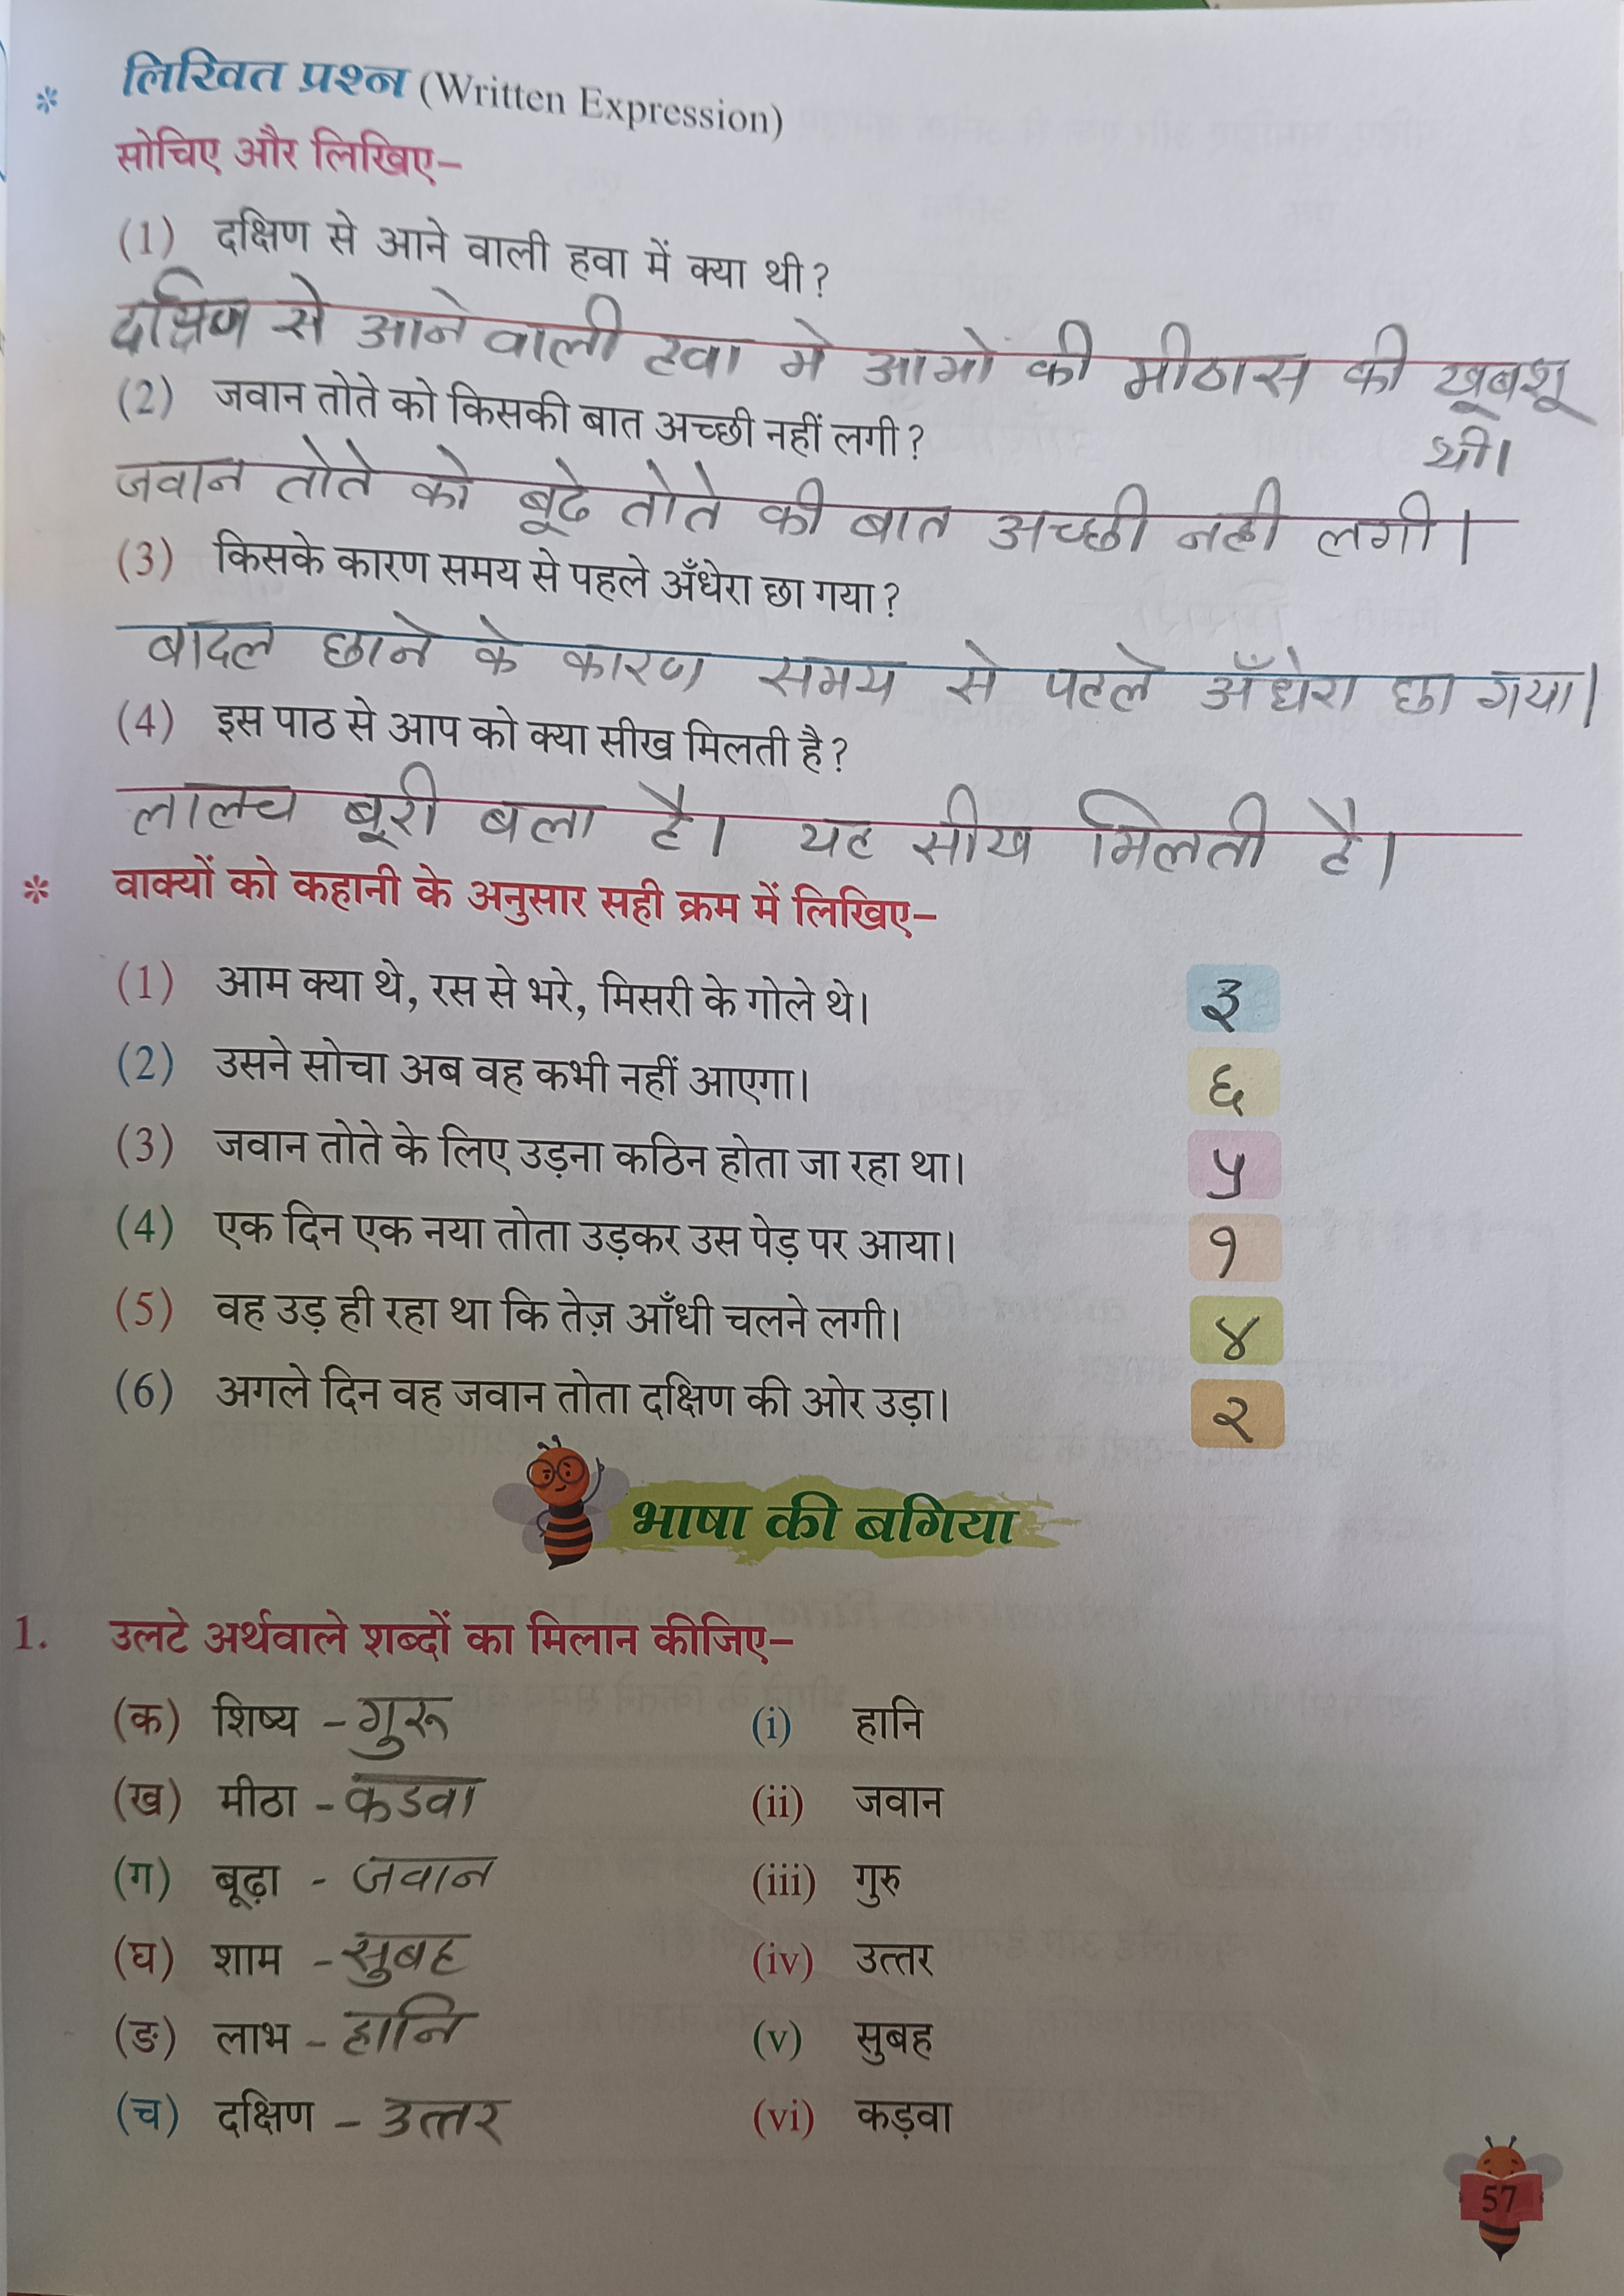 लिखित प्रश्न (Written Expression)
सोचिए और लिखिए–
(1) दक्षिण से आने वाली हवा में क्या थी?
दक्षिण से आने वाली हवा मे आमों की मीठास की खूबशू
थी।
(2) जवान तोते को किसकी बात अच्छी नहीं लगी?
जवान तोते को बूढे तोते की बात अच्छी नही लगी।
(3) किसके कारण समय से पहले अँधेरा छा गया?
बादल छाने के कारण समय से पहले अँधेरा छा गया।
(4) इस पाठ से आप को क्या सीख मिलती है?
लालच बूरी बला है। यह सीख मिलती है।
वाक्यों को कहानी के अनुसार सही क्रम में लिखिए–
(1) आम क्या थे, रस से भरे, मिसरी के गोले थे। ३
(2) उसने सोचा अब वह कभी नहीं आएगा। ६
(3) जवान तोते के लिए उड़ना कठिन होता जा रहा था। ५
(4) एक दिन एक नया तोता उड़कर उस पेड़ पर आया। १
(5) वह उड़ ही रहा था कि तेज़ आँधी चलने लगी। ४
(6) अगले दिन वह जवान तोता दक्षिण की ओर उड़ा। २
भाषा की बगिया
1. उलटे अर्थवाले शब्दों का मिलान कीजिए–
(क) शिष्य – गुरू (i) हानि
(ख) मीठा – कडवा (ii) जवान
(ग) बूढ़ा - जवान (iii) गुरु
(घ) शाम – सुबह (iv) उत्तर
(ङ) लाभ – हानि (v) सुबह
(च) दक्षिण – उत्तर (vi) कड़वा
57